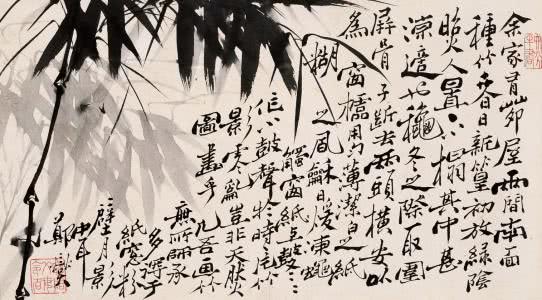 余家有茆屋兩間南面
種竹夏日新篁初放綠陰
照人置一小榻其中甚
涼適也龝冬之際取圍
屏骨子斷去兩頭橫安以
為窗櫺用勻薄潔白之紙
糊之風龢日煖凍蠅
觸窗紙上
作小鼓聲於時一片竹
景零亂豈非天然
圖畫乎凡吾畫竹
無所師承
多得于
紙窗粉
壁月景
中耳
鄭燮